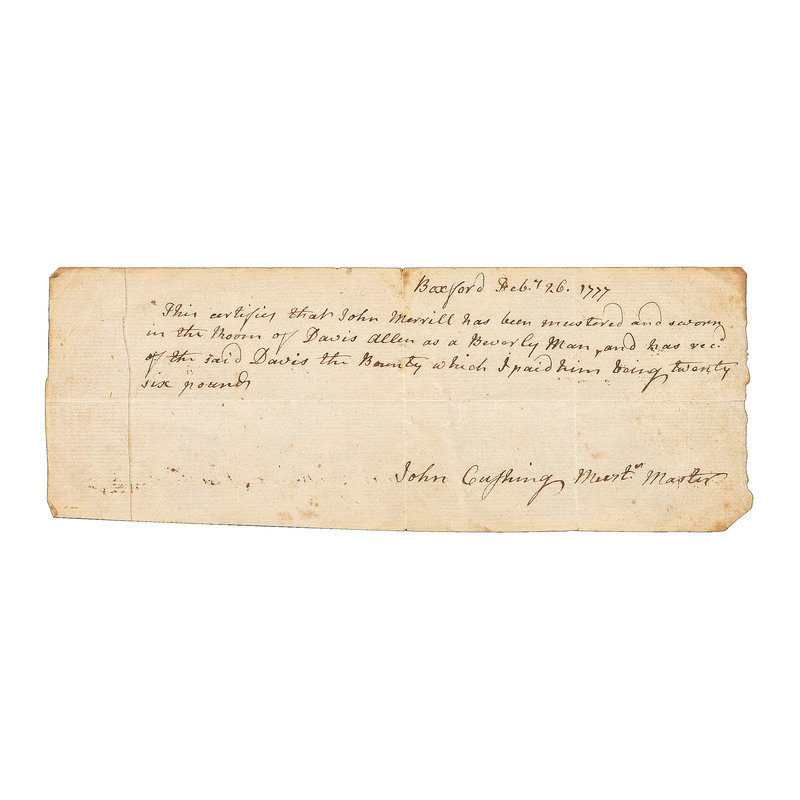 Boxford Feb.y 26. 1777
This certifies that John Merrill has been mustered and sworn
in the Room of Davis Allen as a Beverly Man, and has rec.d
of the said Davis the Bounty which I paid him being twenty
six pounds
John Cushing Must.r Master